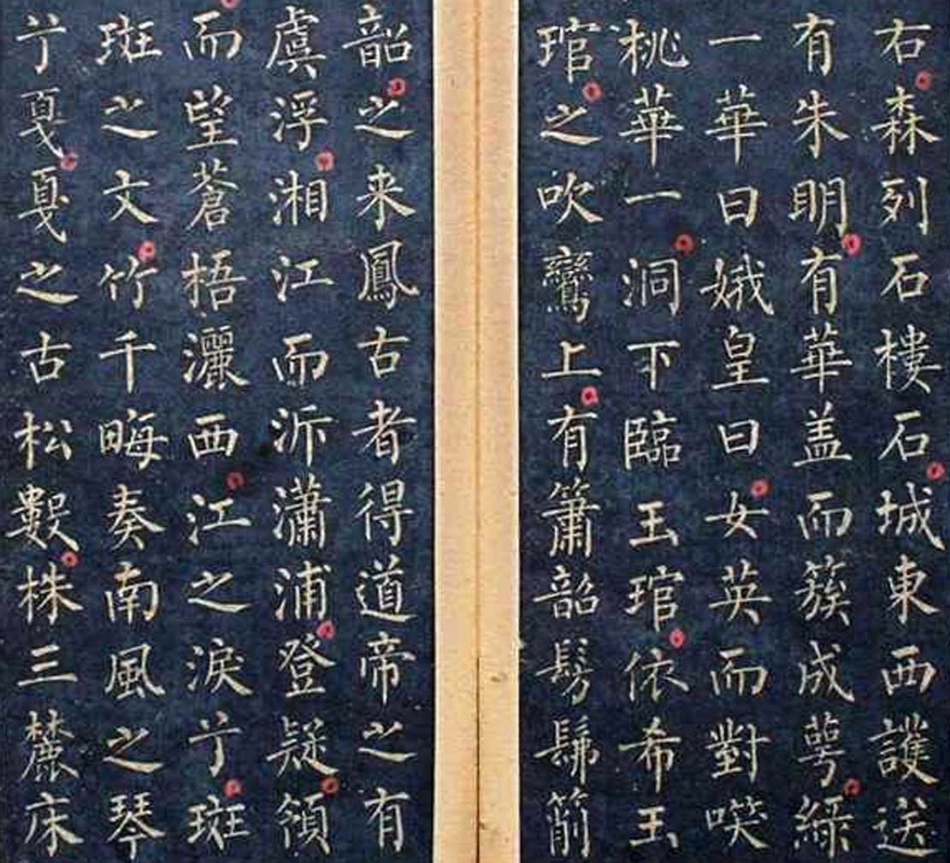 右森列石樓石城東西護送
有朱明有華盖而簇成萼緑
一華曰娥皇曰女英而對㗛
桃華一洞下臨玉琯依希玉
琯之吹鸞上有簫韶髣髴箾
韶之来鳳古者得道帝之有
虞浮湘江而泝瀟浦登疑領
而望蒼梧灑西江之淚亍斑
斑之文竹千畮奏南風之琴
亍戛戛之古松數株三麓床